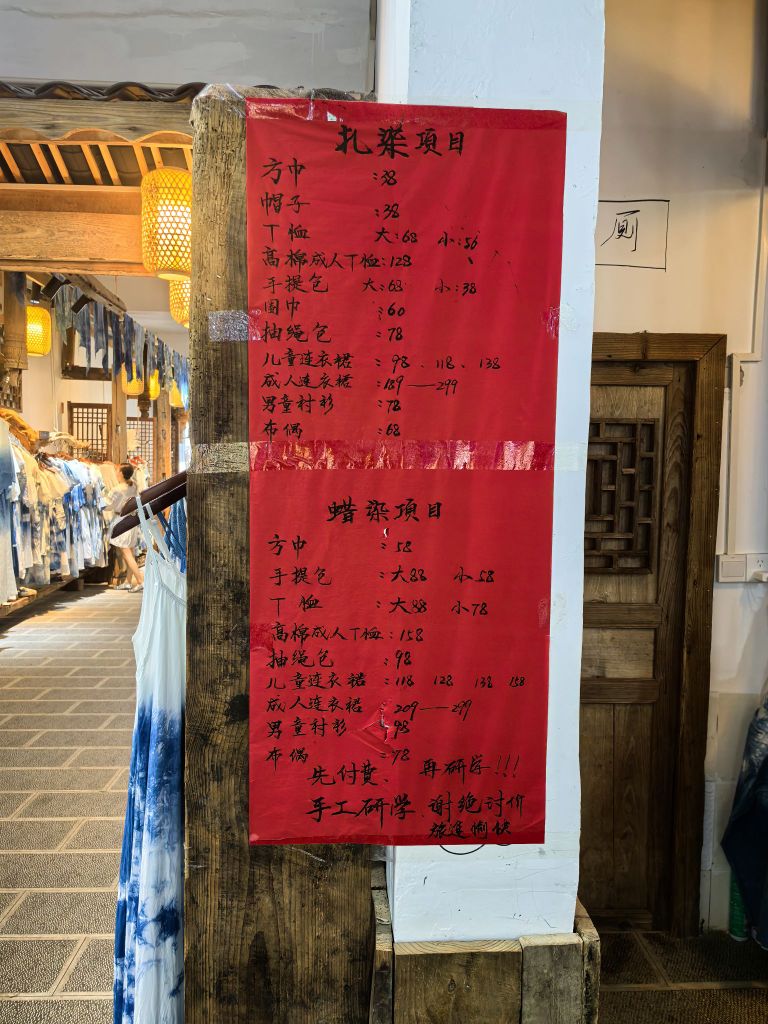 扎染项目
方巾 :38
帽子 :38
T恤 大:68 小:56
高棉成人T恤:128
手提包 大:68 小:38
围巾 :60
抽绳包 :78
儿童连衣裙 :98、118、138
成人连衣裙 :189——299
男童衬衫 :78
布偶 :68
蜡染项目
方巾 :58
手提包 :大88 小58
T恤 :大88 小78
高棉成人T恤:158
抽绳包 :98
儿童连衣裙 :118 128 138 158
成人连衣裙 :209——299
男童衬衫 :98
布偶 :78
先付费、再研学!!!
手工研学、谢绝讨价
旅途愉快
厕